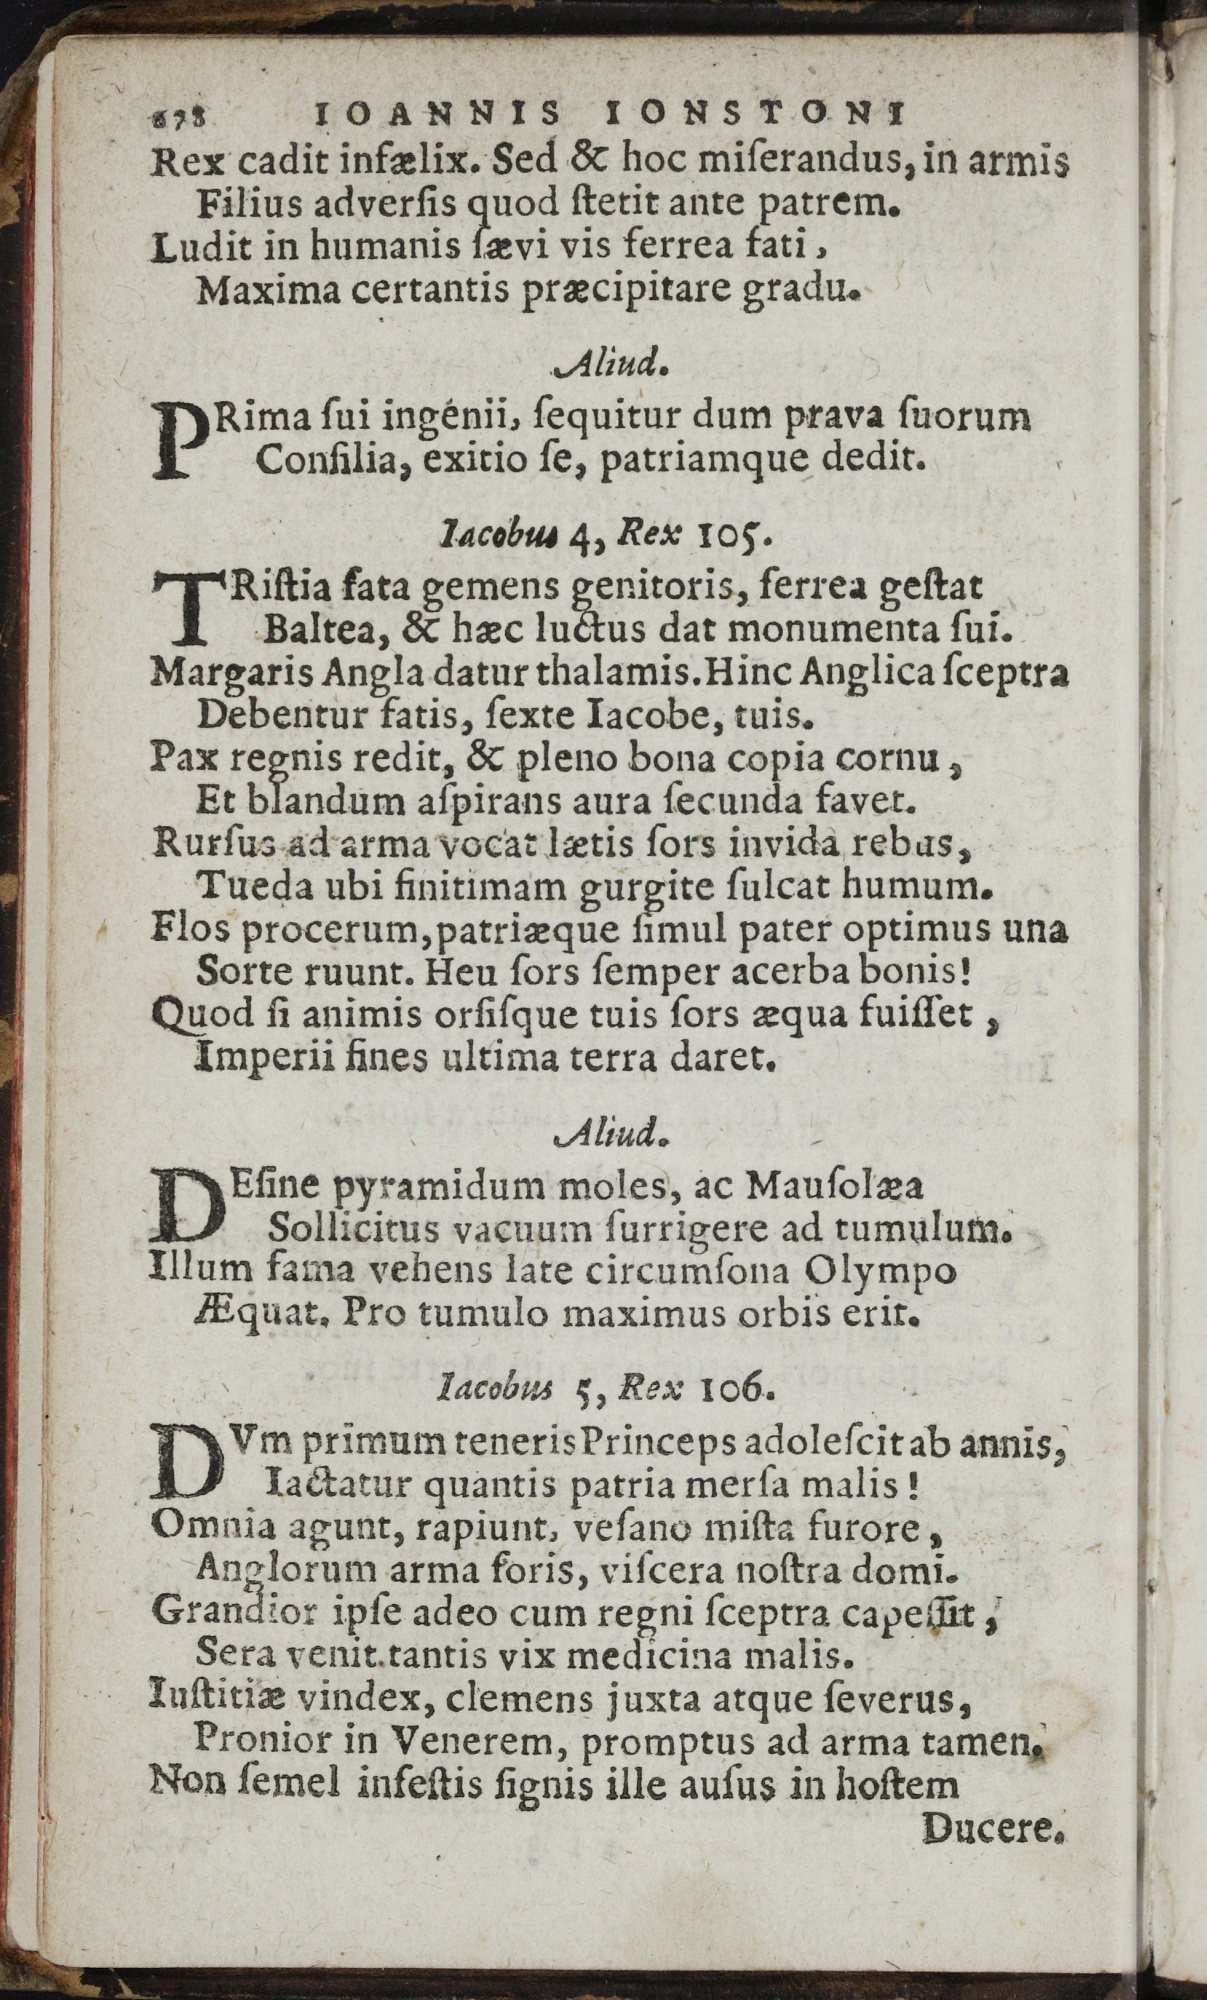 678 IOANNIS IONSTONI
Rex cadit infælix. Sed & hoc miſerandus, in armis
Filius adverſis quod ſtetit ante patrem.
Ludit in humanis ſævi vis ferrea fati,
Maxima certantis præcipitare gradu.
Aliud.
PRima ſui ingenii, ſequitur dum prava ſuorum
Conſilia, exitio ſe, patriamque dedit.
Iacobus 4, Rex 105.
TRiſtia fata gemens genitoris, ferrea geſtat
Baltea, & hæc luctus dat monumenta ſui.
Margaris Angla datur thalamis. Hinc Anglica ſceptra
Debentur fatis, ſexte Iacobe, tuis.
Pax regnis redit, & pleno bona copia cornu,
Et blandum aſpirans aura ſecunda favet.
Rurſus ad arma vocat lætis ſors invida rebus,
Tueda ubi finitimam gurgite ſulcat humum.
Flos procerum, patriæque ſimul pater optimus una
Sorte ruunt. Heu ſors ſemper acerba bonis!
Quod ſi animis orſiſque tuis ſors æqua fuiſſet,
Imperii fines ultima terra daret.
Aliud.
DEſine pyramidum moles, ac Mauſolæa
Sollicitus vacuum ſurrigere ad tumulum.
Illum fama vehens late circumſona Olympo
Æquat. Pro tumulo maximus orbis erit.
Iacobus 5, Rex 106.
DVm primum teneris Princeps adoleſcit ab annis,
Iactatur quantis patria merſa malis!
Omnia agunt, rapiunt, veſano miſta furore,
Anglorum arma foris, viſcera noſtra domi.
Grandior ipſe adeo cum regni ſceptra capeſſit,
Sera venit tantis vix medicina malis.
Iuſtitiæ vindex, clemens juxta atque ſeverus,
Pronior in Venerem, promptus ad arma tamen.
Non ſemel infeſtis ſignis ille auſus in hoſtem
Ducere.